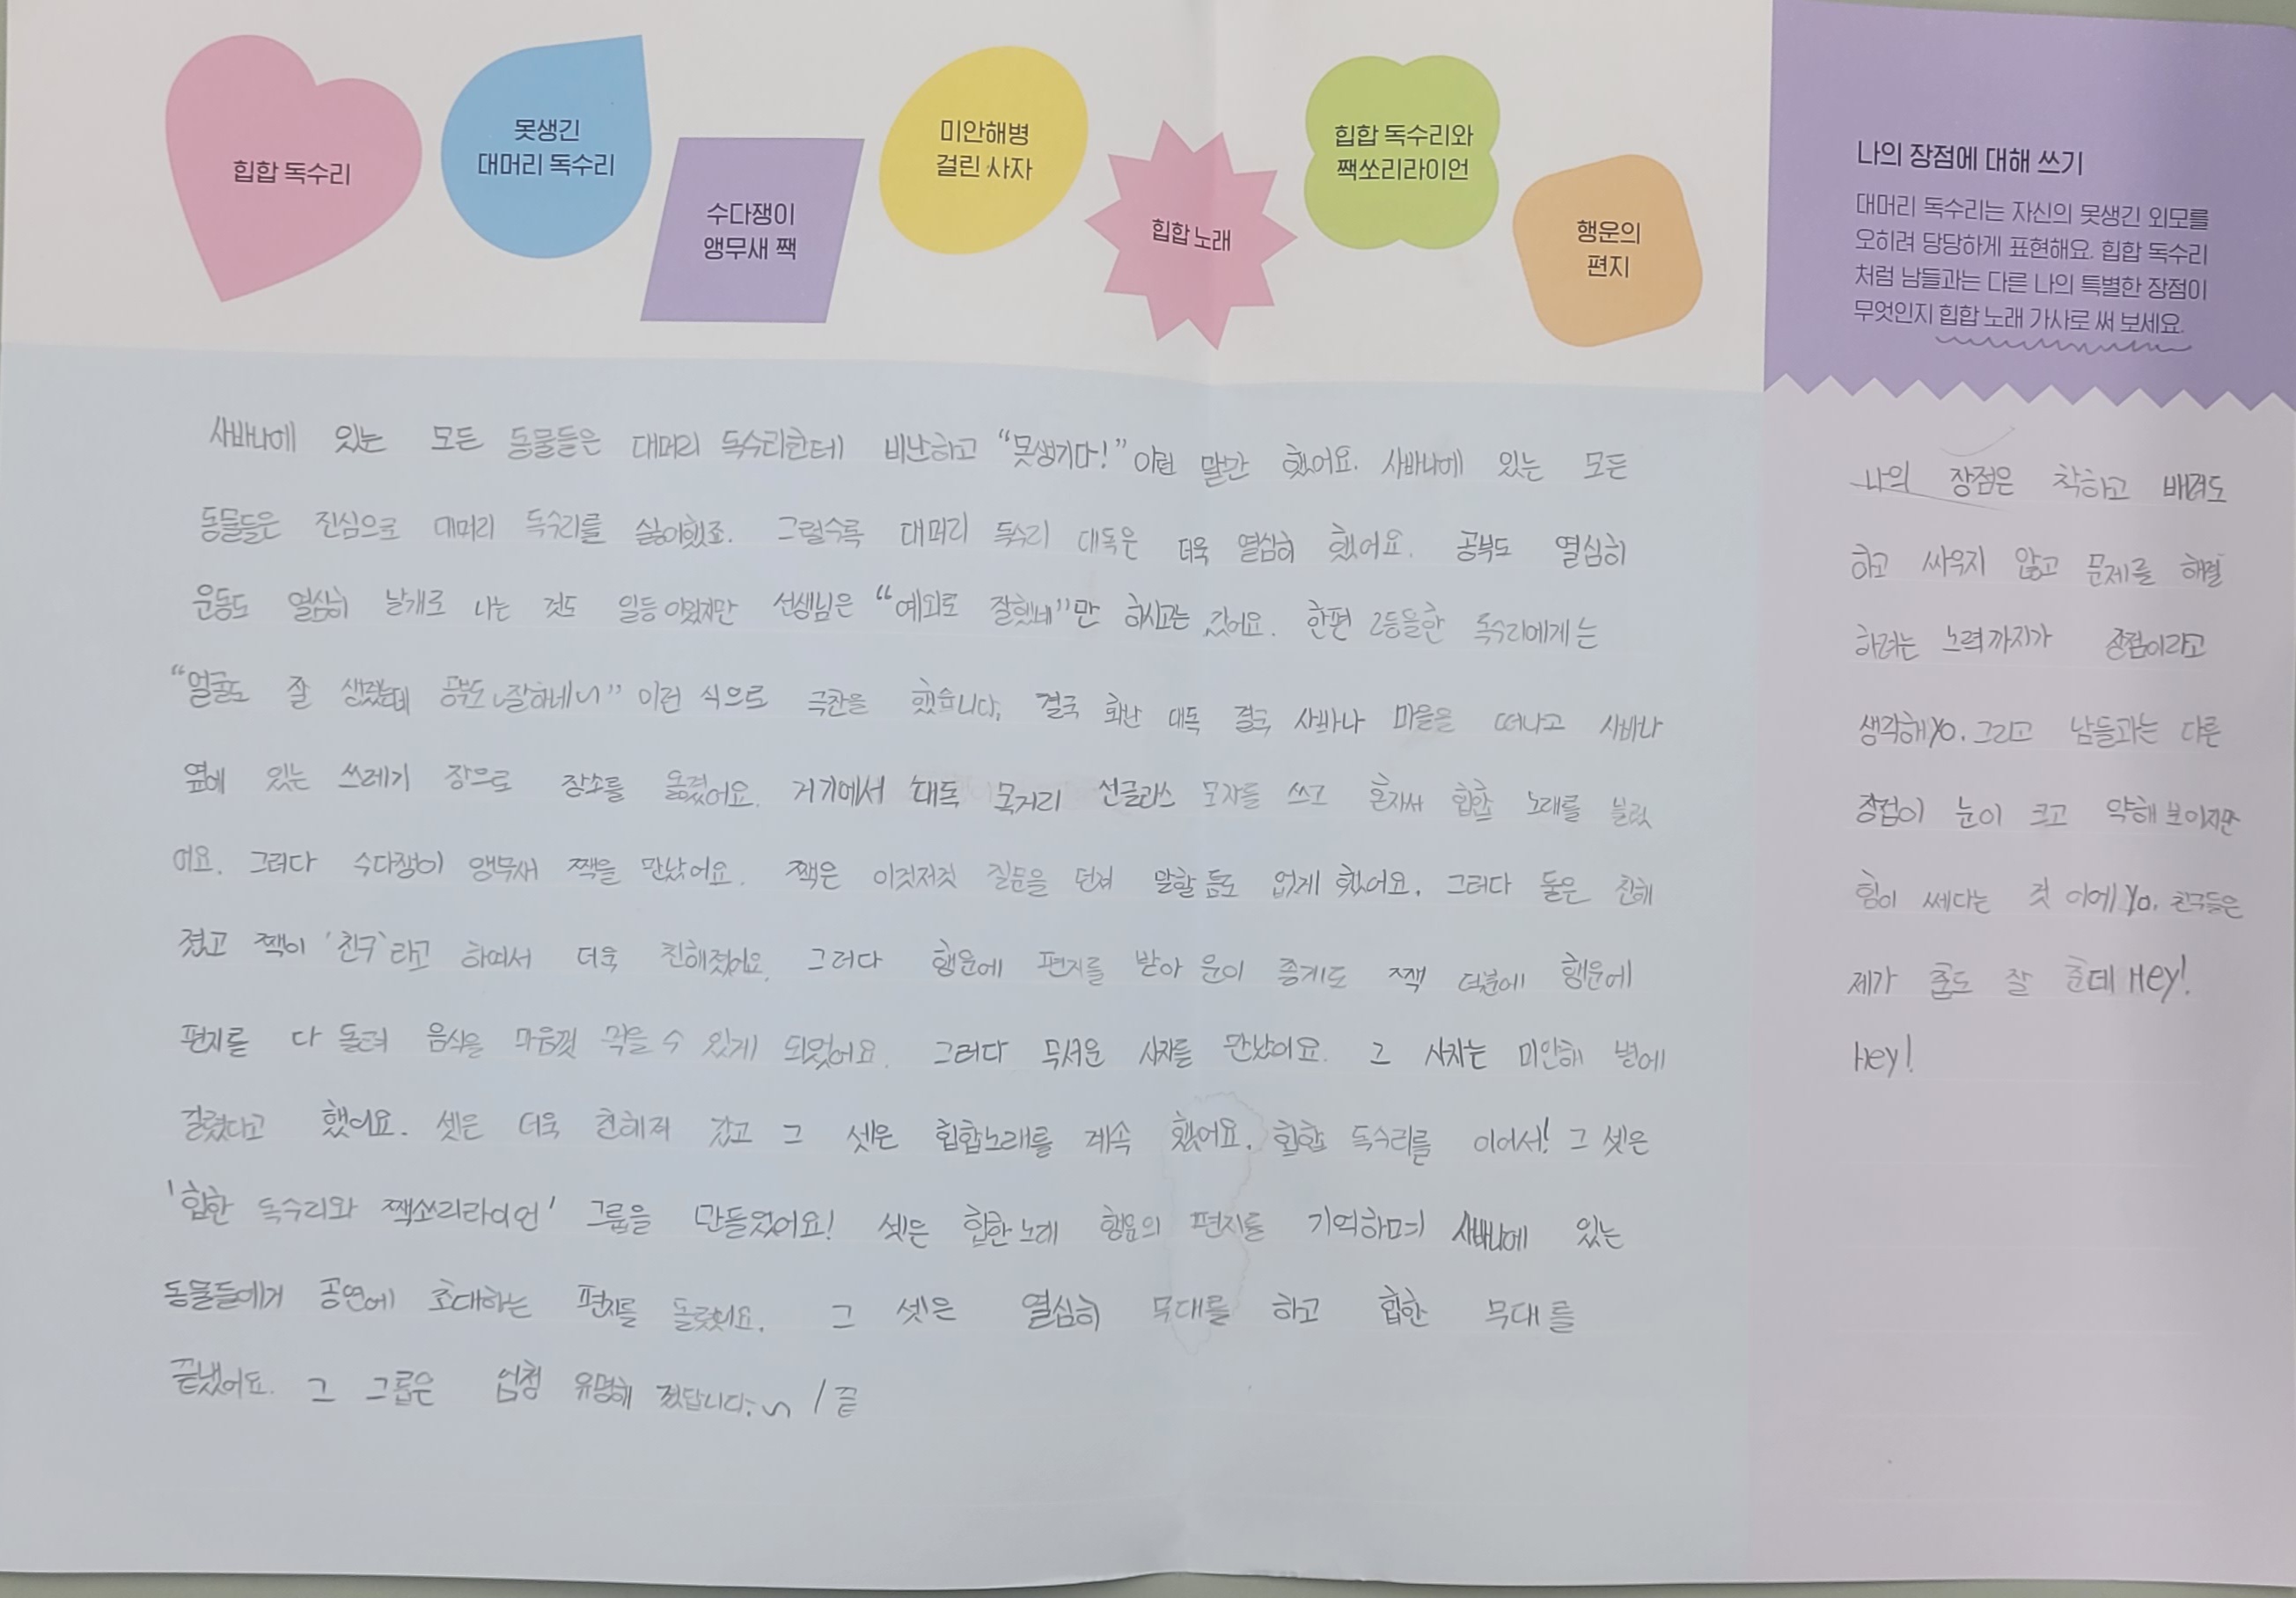 힙합 독수리
못생긴
대머리 독수리
수다쟁이
앵무새 짹
미안해병
걸린 사자
힙합 노래
힙합 독수리와
짹쏘리라이언
행운의
편지
사바나에 있는 모든 동물들은 대머리 독수리한테 비난하고 “못생기다!” 이런 말만 했어요. 사바나에 있는 모든
동물들은 진심으로 대머리 독수리를 싫어했죠. 그럴수록 대머리 독수리 대독은 더욱 열심히 했어요. 공부도 열심히
운동도 열심히 날개로 나는 것도 일등이었지만 선생님은 “예외로 잘했네”만 하시고는 갔어요. 한편 2등을한 독수리에게는
“얼굴도 잘 생겼는데 공부도 잘하네~” 이런 식으로 극찬을 했습니다. 결국 화난 대독 결국 사바나 마을을 떠나고 사바나
옆에 있는 쓰레기 장으로 장소를 옮겼어요. 거기에서 대독 목거리 선글라스 모자를 쓰고 혼자서 힙합 노래를 불렀
어요. 그러다 수다쟁이 앵무새 짹을 만났어요. 짹은 이것저것 질문을 던져 말할 틈도 없게 했어요. 그러다 둘은 친해
졌고 짹이 ‘친구’라고 하여서 더욱 친해졌어요. 그러다 행운에 편지를 받아 운이 좋게도 짹 덕분에 행운에
편지를 다 돌려 음식을 마음껏 먹을 수 있게 되었어요. 그러다 무서운 사자를 만났어요. 그 사자는 미안해 병에
걸렸다고 했어요. 셋은 더욱 친해져 갔고 그 셋은 힙합노래를 계속 했어요. 힙합 독수리를 이어서! 그 셋은
'힙한 독수리와 짹쏘리라이언' 그룹을 만들었어요! 셋은 힙한 노래 행운의 편지를 기억하며 사바나에 있는
동물들에게 공연에 초대하는 편지를 돌렸어요. 그 셋은 열심히 무대를 하고 힙한 무대를
끝냈어요. 그 그룹은 엄청 유명해 졌답니다.~ / 끝
나의 장점에 대해 쓰기
대머리 독수리는 자신의 못생긴 외모를
오히려 당당하게 표현해요. 힙합 독수리
처럼 남들과는 다른 나의 특별한 장점이
무엇인지 힙합 노래 가사로 써 보세요.
나의 장점은 착하고 배려도
하고 싸우지 않고 문제를 해결
하려는 노력까지가 장점이라고
생각해yo. 그리고 남들과는 다른
장점이 눈이 크고 약해 보이지만
힘이 쎄다는 것 이에yo. 친구들은
제가 춤도 잘 춘데 Hey!
Hey!